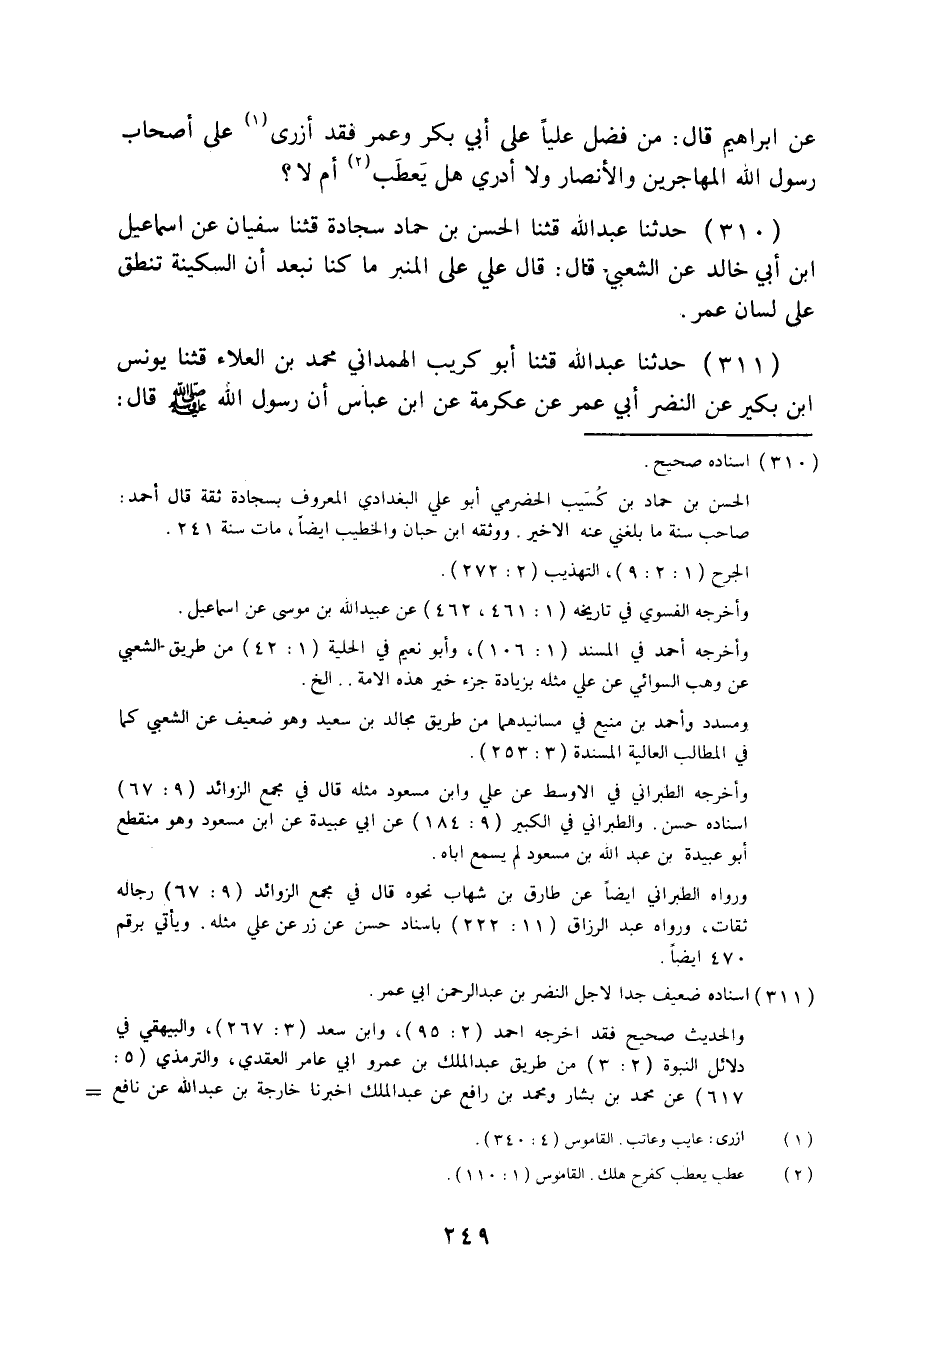 عن ابراهيم قال: من فضل علياً على أبي بكر وعمر فقد أزرى(١) على أصحاب
رسول الله المهاجرين والأنصار ولا أدري هل يَعطَب(٢) أم لا؟
(٣١٠) حدثنا عبدالله قثنا الحسن بن حماد سجادة قثنا سفيان عن اسماعيل
ابن أبي خالد عن الشعبي قال: قال علي على المنبر ما كنا نبعد أن السكينة تنطق
على لسان عمر.
(٣١١) حدثنا عبدالله قثنا أبو كريب الهمداني محمد بن العلاء قثنا يونس
ابن بكير عن النضر أبي عمر عن عكرمة عن ابن عباس أن رسول الله ﷺ قال:
(٣١٠) اسناده صحيح.
الحسن بن حماد بن كُسَيب الحضرمي أبو علي البغدادي المعروف بسجادة ثقة قال أحمد:
صاحب سنة ما بلغني عنه الاخير. ووثقه ابن حبان والخطيب ايضاً، مات سنة ٢٤١.
الجرح (١: ٢: ٩)، التهذيب (٢: ٢٧٢).
وأخرجه الفسوي في تاريخه (١: ٤٦١، ٤٦٢) عن عبيدالله بن موسى عن اسماعيل.
وأخرجه أحمد في المسند (١: ١٠٦)، وأبو نعيم في الحلية (١: ٤٢) من طريق الشعبي
عن وهب السوائي عن علي مثله بزيادة جزء خير هذه الامة.. الخ.
ومسدد وأحمد بن منيع في مسانيدهما من طريق مجالد بن سعيد وهو ضعيف عن الشعبي كما
في المطالب العالية المسندة (٣: ٢٥٣).
وأخرجه الطبراني في الاوسط عن علي وابن مسعود مثله قال في مجمع الزوائد (٩: ٦٧)
اسناده حسن. والطبراني في الكبير (٩: ١٨٤) عن ابي عبيدة عن ابن مسعود وهو منقطع
أبو عبيدة بن عبد الله بن مسعود لم يسمع اباه.
ورواه الطبراني ايضاً عن طارق بن شهاب نحوه قال في مجمع الزوائد (٩: ٦٧) رجاله
ثقات، ورواه عبد الرزاق (١١: ٢٢٢) باسناد حسن عن زر عن علي مثله. ويأتي برقم
٤٧٠ ايضاً.
(٣١١) اسناده ضعيف جدا لاجل النضر بن عبدالرحمن ابي عمر.
والحديث صحيح فقد اخرجه احمد (٢: ٩٥)، وابن سعد (٣: ٢٦٧)، والبيهقي في
دلائل النبوة (٢: ٣) من طريق عبدالملك بن عمرو ابي عامر العقدي، والترمذي (٥:
٦١٧) عن محمد بن بشار ومحمد بن رافع عن عبدالملك اخبرنا خارجة بن عبدالله عن نافع =
(١) ازرى: عايب وعاتب. القاموس (٤: ٣٤٠).
(٢) عطب يعطب كفرح هلك. القاموس (١: ١١٠).
٢٤٩